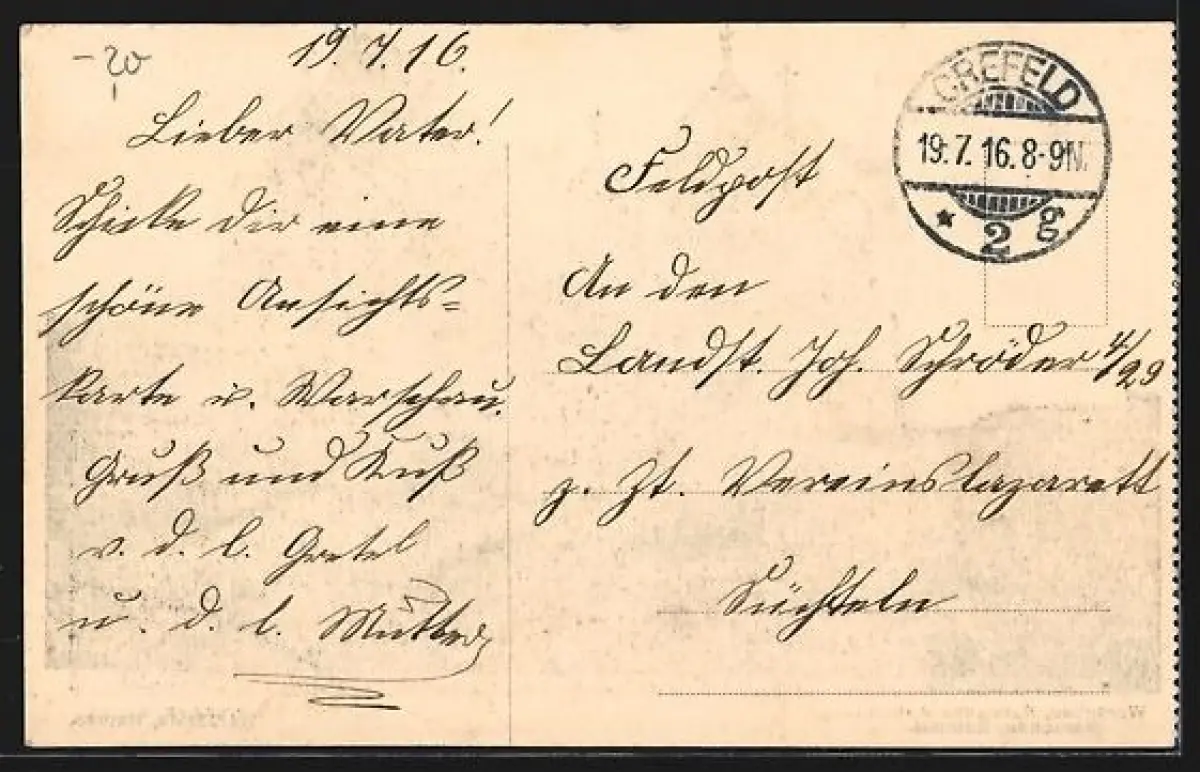 -20
19.7.16.
Lieber Vater!
Schicke Dir eine
schöne Ansichts=
karte v. Warschau.
Gruß und Kuß
v. d. l. Gretel
u. d. l. Mutter
CREFELD
19.7.16.8-9N.
* 2 g
Feldpost
An den
Landst. Joh. Schröder 4/29
z. Zt. Vereinslazarett
Süchteln